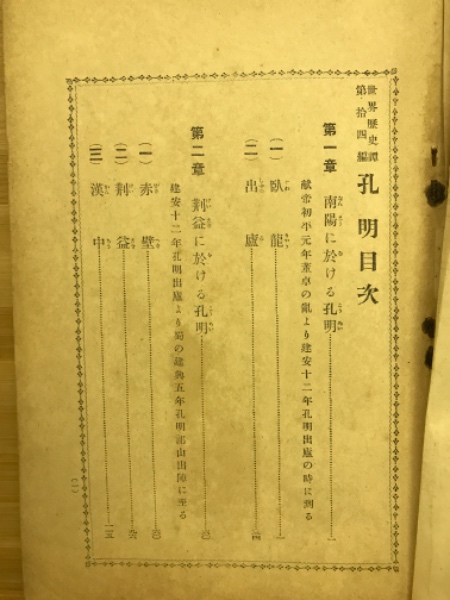 世界歴史譚
第拾四編
孔明目次
第一章 南陽に於ける孔明 一
献帝初平元年董卓の亂より建安十二年孔明出廬の時に到る
(一) 臥龍 一
(二) 出廬
第二章 荊益に於ける孔明
建安十二年孔明出廬より蜀の建興五年孔明祁山出陣に至る
(一) 赤壁
(二) 荊益
(三) 漢中 一一五
(一)